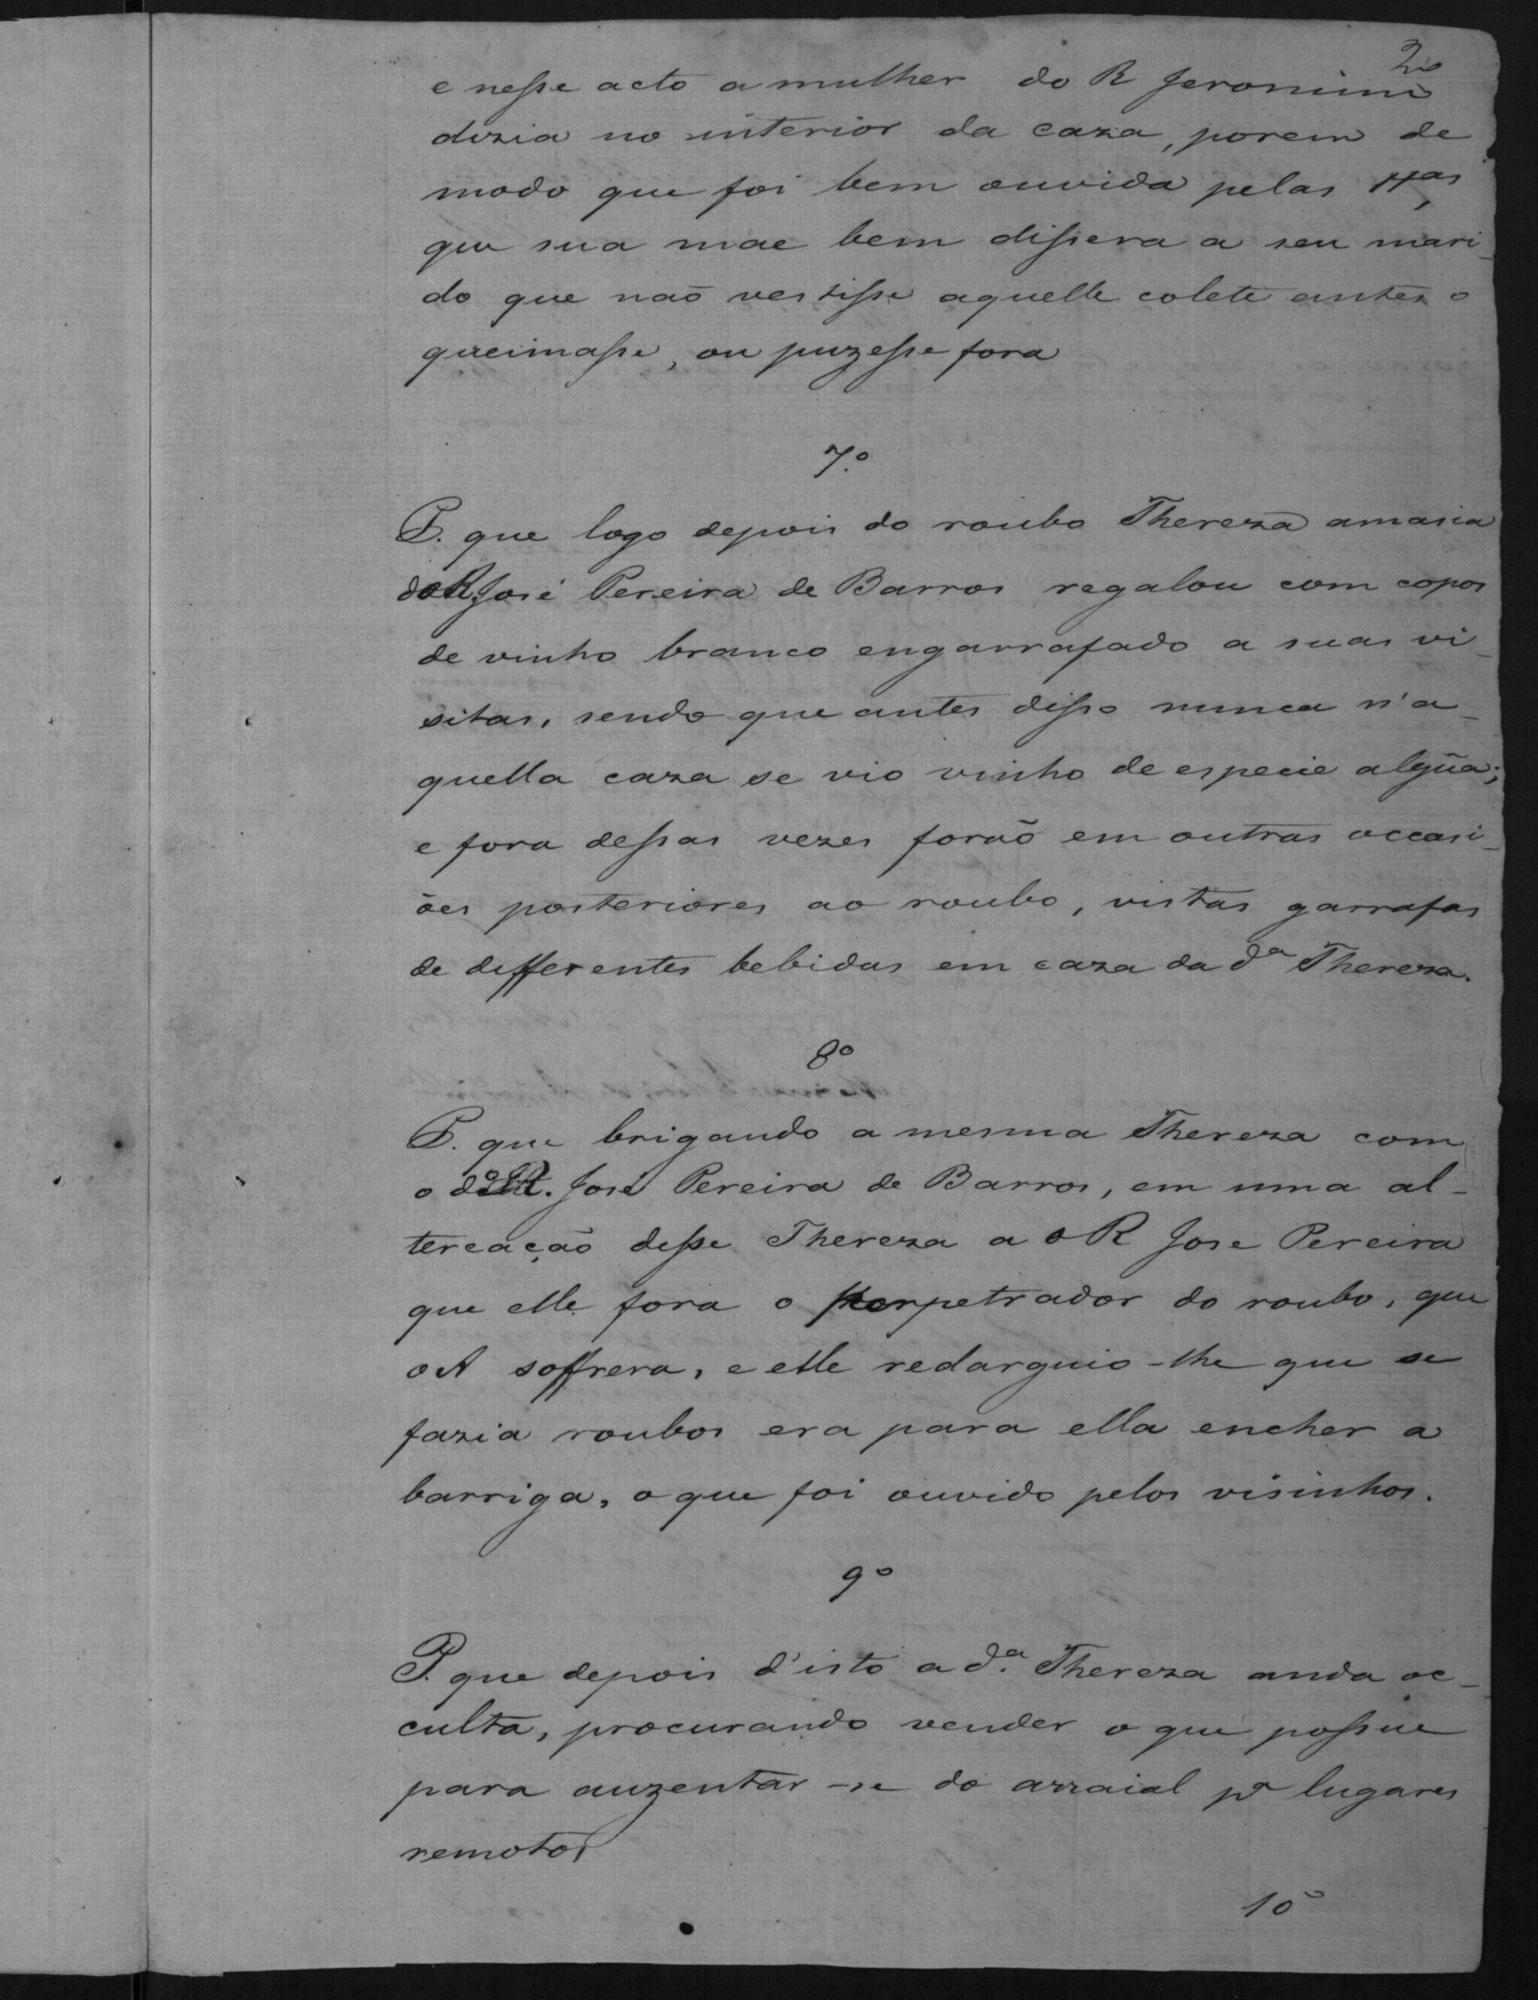 2
e nesse acto a mulher do R Jeronimo
dizia no interior da caza, porem de
modo que foi bem ouvida pelas ttas,
que sua mae bem dissera a seu mari-
do que naõ vestisse aquelle colete antes o
queimasse, ou puzesse fora
7.º
P. que logo depois do roubo Thereza amasia
do R. José Pereira de Barros regalou com copos
de vinho branco engarrafado a suas vi-
sitas, sendo que antes disso nunca n'a-
quella caza se vio vinho de especie algũa;
e fora dessas vezes foraõ em outras occasi-
ões posteriores ao roubo, vistas garrafas
de differentes bebidas em caza da dª Thereza.
8º
P. que brigando a mesma Thereza com
o dº R. José Pereira de Barros, em uma al-
tercação desse Thereza a o R Jose Pereira
que elle fora o perpetrador do roubo, que
o A soffrera, e elle redarguio-lhe que se
fazia roubos era para ella encher a
barriga, o que foi ouvido pelos visinhos.
9º
P. que depois d'isto a d.ª Thereza anda oc-
culta, procurando vender o que possue
para auzentar-se do arraial pª lugares
remotos
10